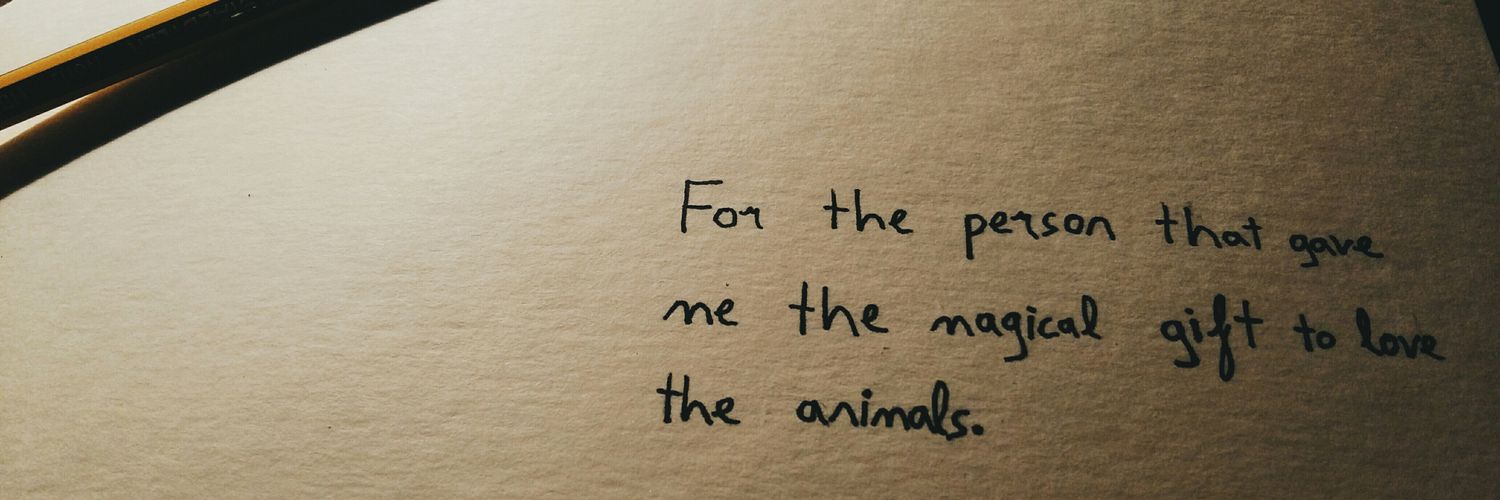 For the person that gave
me the magical gift to love
the animals.